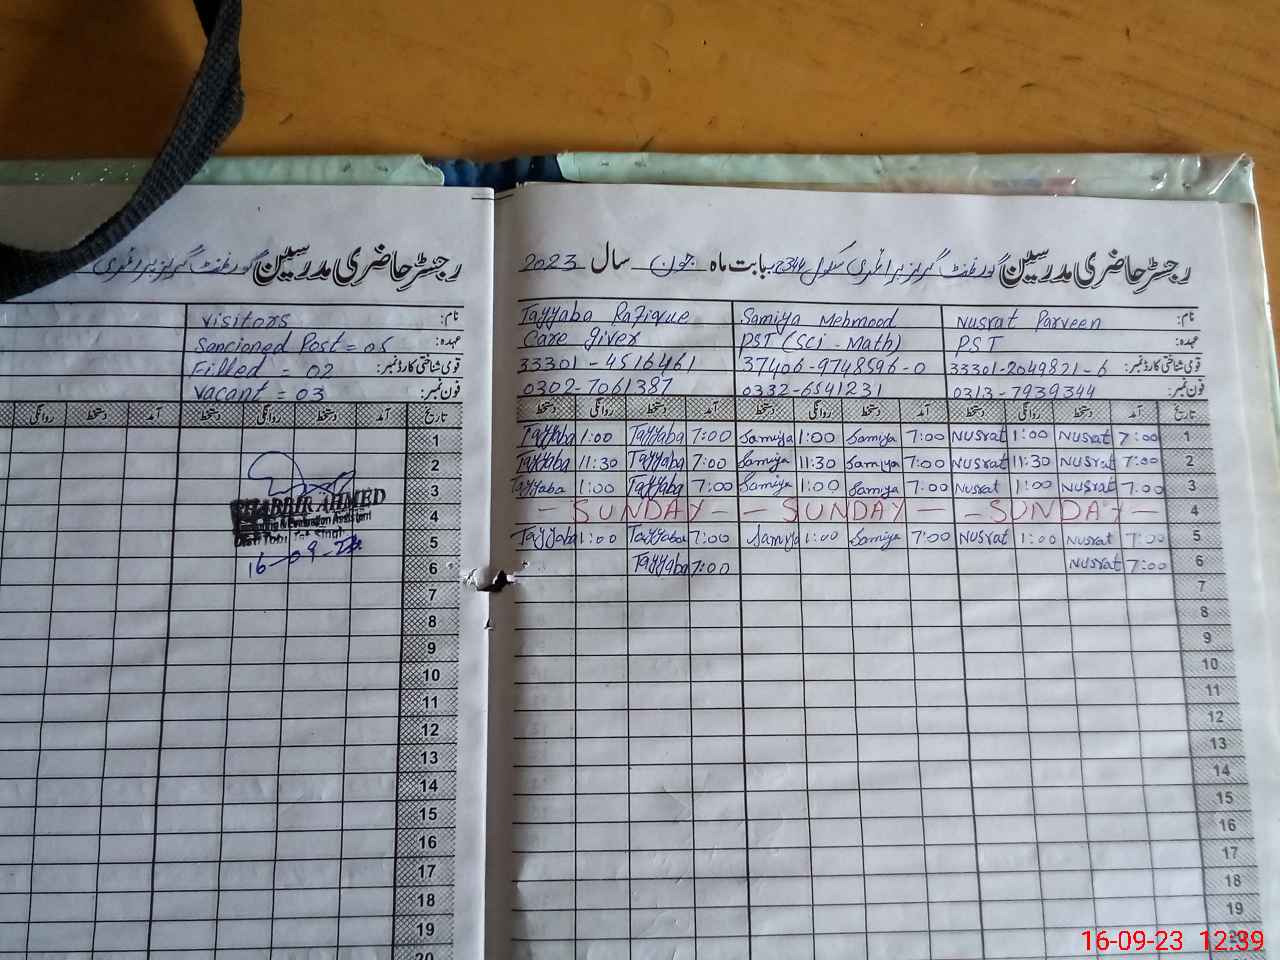 رجسٹر حاضری مدرسین گورنمنٹ گرلز پرائمری
نام: Visitors
عہدہ: Sanctioned Post = 05
قومی شناختی کارڈ نمبر: Filled = 02
فون نمبر: Vacant = 03
تاریخ آمد دستخط روانگی دستخط آمد دستخط روانگی
1
2
3
SHABBIR AHMED
4
5
16-09-23
6
7
8
9
10
11
12
13
14
15
16
17
18
19
20
رجسٹر حاضری مدرسین گورنمنٹ گرلز پرائمری سکول 344 بابت ماہ جون سال 2023
نام: Nusrat Parveen Samiya Mehmood Tayyaba Rafique
عہدہ: PST PST (Sci - Math) Care giver
قومی شناختی کارڈ نمبر: 33301-2049821-6 37406-9748596-0 33301-4516461
فون نمبر: 0313-7939344 0332-6541231 0302-7061387
تاریخ آمد دستخط روانگی دستخط آمد دستخط روانگی دستخط آمد دستخط روانگی دستخط
1 7:00 Nusrat 1:00 Nusrat 7:00 Samiya 1:00 Samiya 7:00 Tayyaba 1:00 Tayyaba
2 7:00 Nusrat 11:30 Nusrat 7:00 Samiya 11:30 Samiya 7:00 Tayyaba 11:30 Tayyaba
3 7:00 Nusrat 1:00 Nusrat 7:00 Samiya 1:00 Samiya 7:00 Tayyaba 1:00 Tayyaba
4 - SUNDAY - - SUNDAY - - SUNDAY -
5 7:00 Nusrat 1:00 Nusrat 7:00 Samiya 1:00 Samiya 7:00 Tayyaba 1:00 Tayyaba
6 7:00 Nusrat 7:00 Tayyaba
7
8
9
10
11
12
13
14
15
16
17
18
19
20
16-09-23 12:39